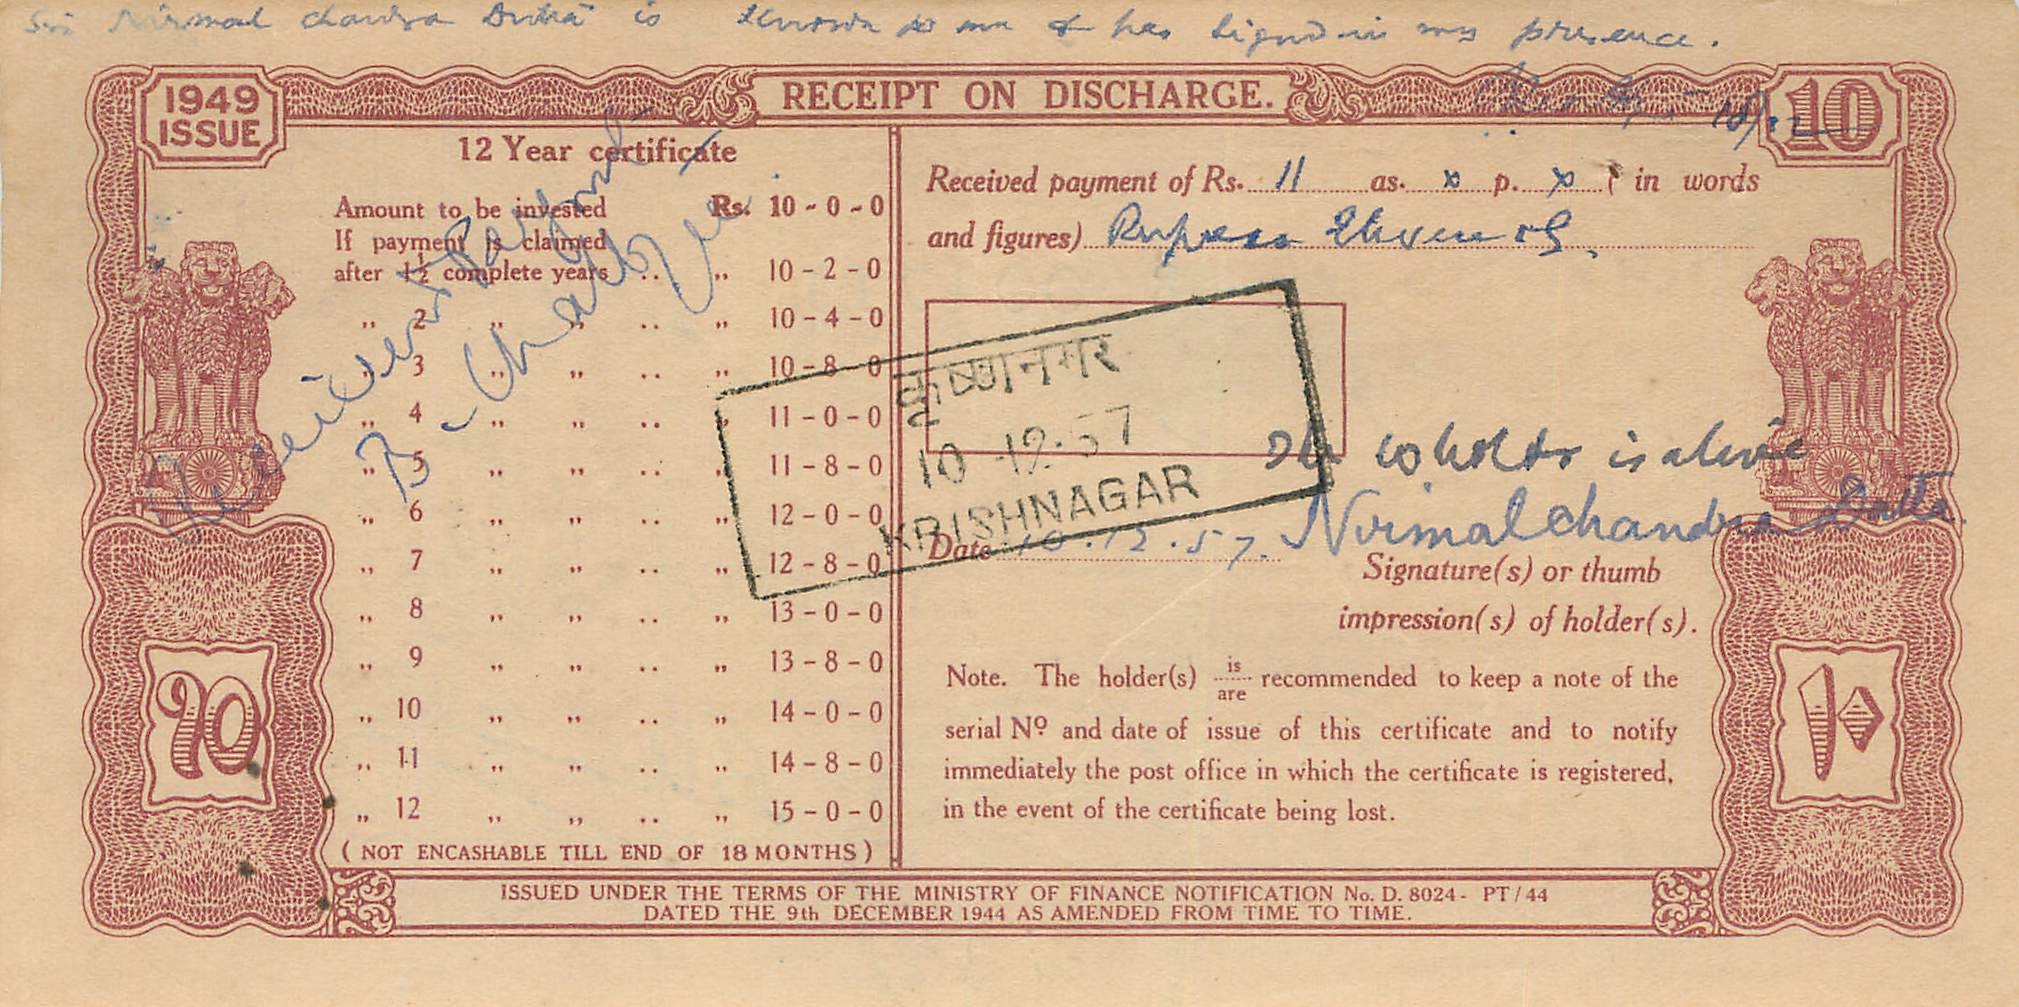 Sri Nirmal Chandra Dutta is known to me & has signed in my presence.
1949
ISSUE
RECEIPT ON DISCHARGE.
10
12 Year certificate
Amount to be invested Rs. 10-0-0
If payment is claimed
after 1½ complete years .. „ 10-2-0
„ 2 „ „ .. „ 10-4-0
„ 3 „ „ .. „ 10-8-0
„ 4 „ „ .. „ 11-0-0
„ 5 „ „ .. „ 11-8-0
„ 6 „ „ .. „ 12-0-0
„ 7 „ „ .. „ 12-8-0
„ 8 „ „ .. „ 13-0-0
„ 9 „ „ .. „ 13-8-0
„ 10 „ „ .. „ 14-0-0
„ 11 „ „ .. „ 14-8-0
„ 12 „ „ .. „ 15-0-0
(NOT ENCASHABLE TILL END OF 18 MONTHS)
Received payment
Received payment of Rs. 11 as. x p. x (in words
and figures) Rupees Eleven only.
कृष्णनगर
10-12-57
KRISHNAGAR
The coholder is alive
Date 10.12.57. Nirmal Chandra Datta.
Signature(s) or thumb
impression(s) of holder(s).
Note. The holder(s) is/are recommended to keep a note of the
serial Nº and date of issue of this certificate and to notify
immediately the post office in which the certificate is registered,
in the event of the certificate being lost.
१०
۱۰
ISSUED UNDER THE TERMS OF THE MINISTRY OF FINANCE NOTIFICATION No. D. 8024- PT/44
DATED THE 9th DECEMBER 1944 AS AMENDED FROM TIME TO TIME.